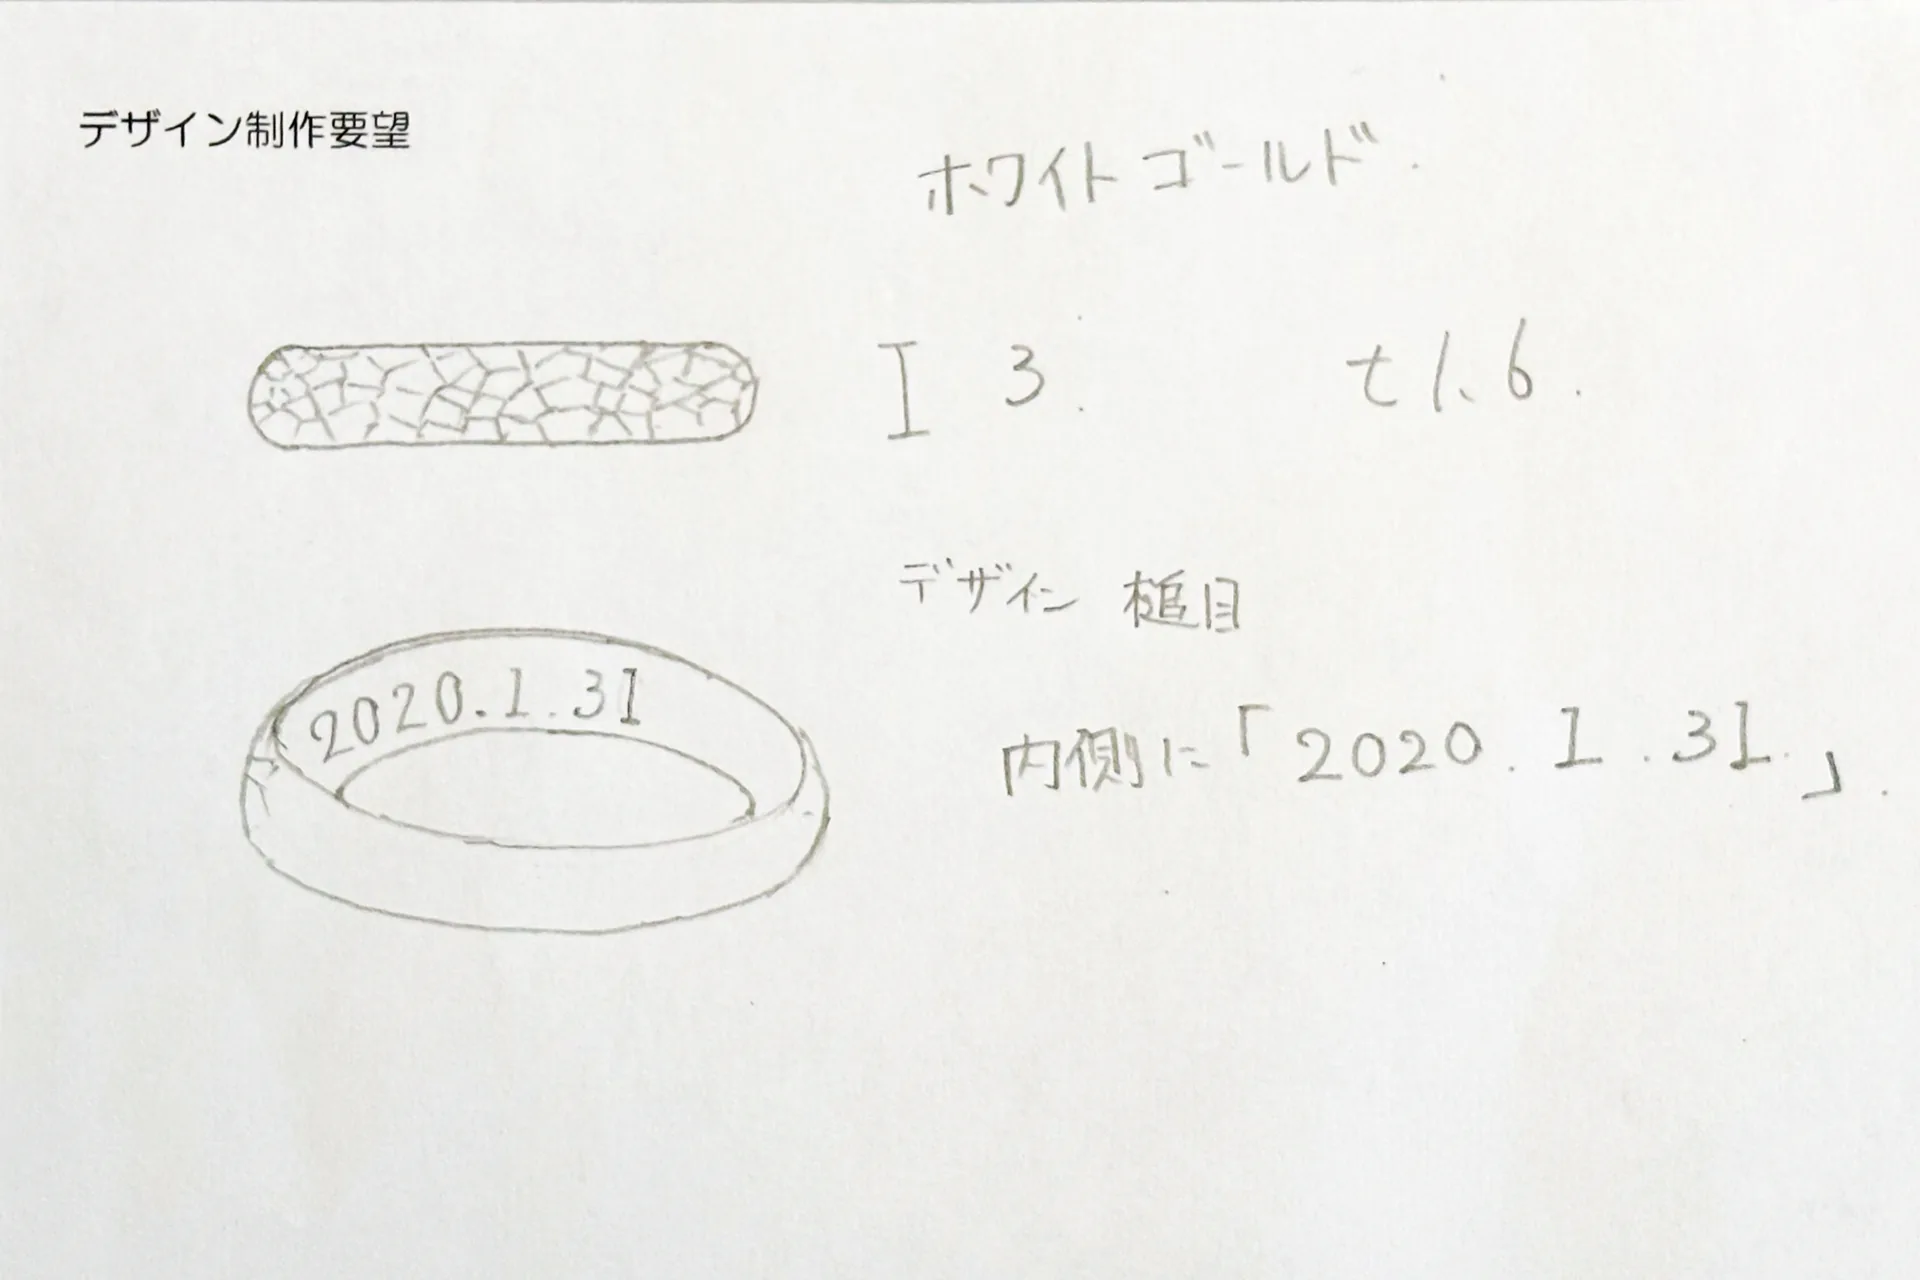 デザイン制作要望
ホワイトゴールド.
3. t1.6.
デザイン 槌目
2020.1.31
内側に「2020.1.31.」.